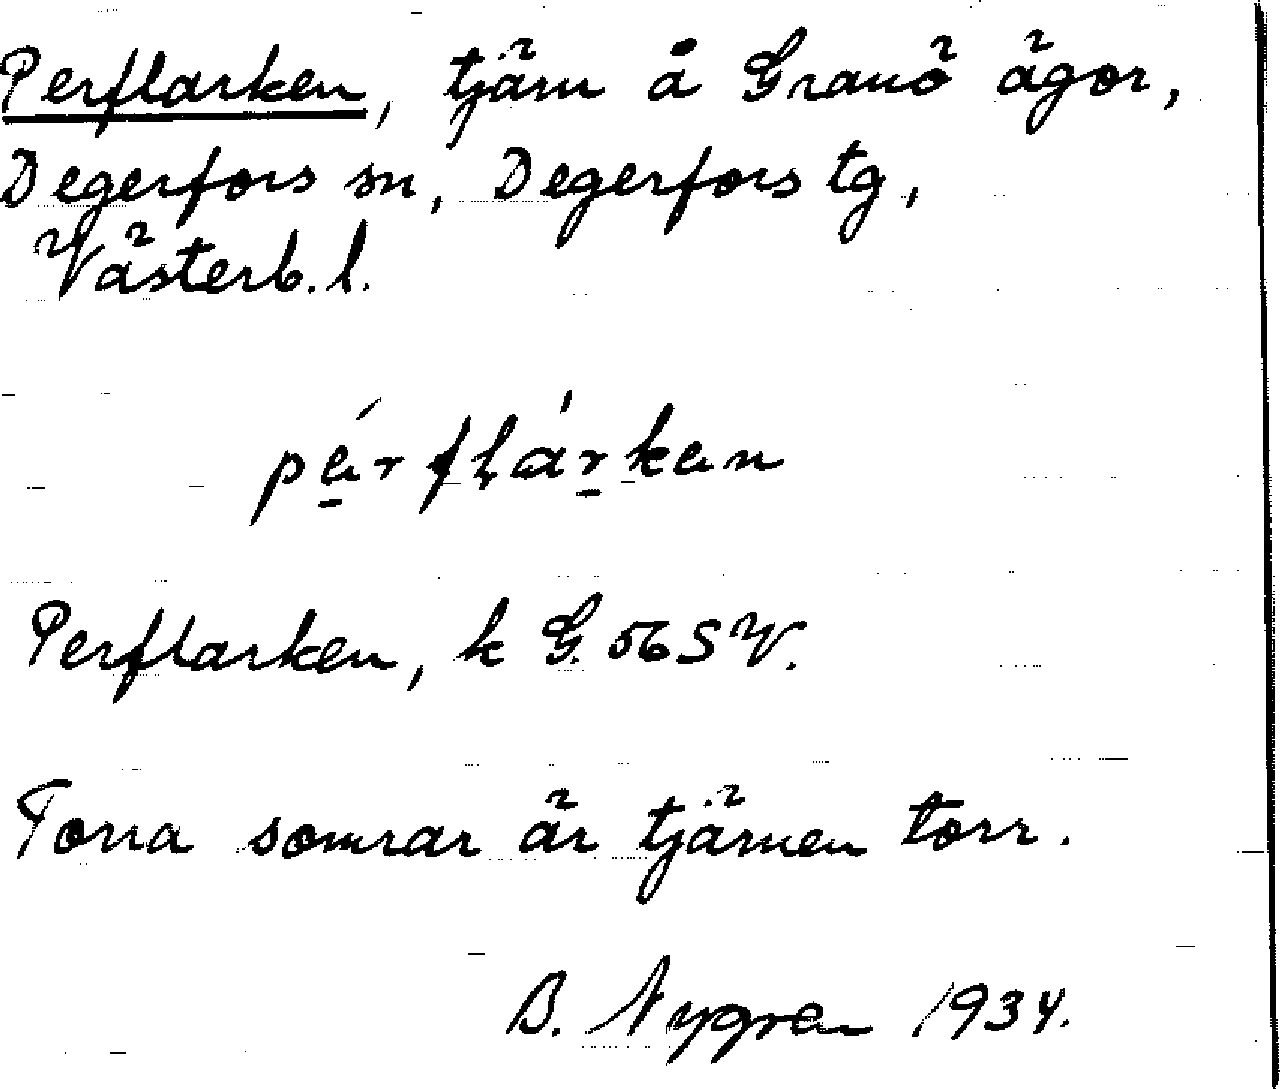 Perflarken, tjärn å Granö ägor,
Degerfors sn, Degerfors tg,
Västerb. l.
pärflárkan
Perflarken, k G. 56 SV.
Torra somrar är tjärnen torr.
B. Nygren 1934.